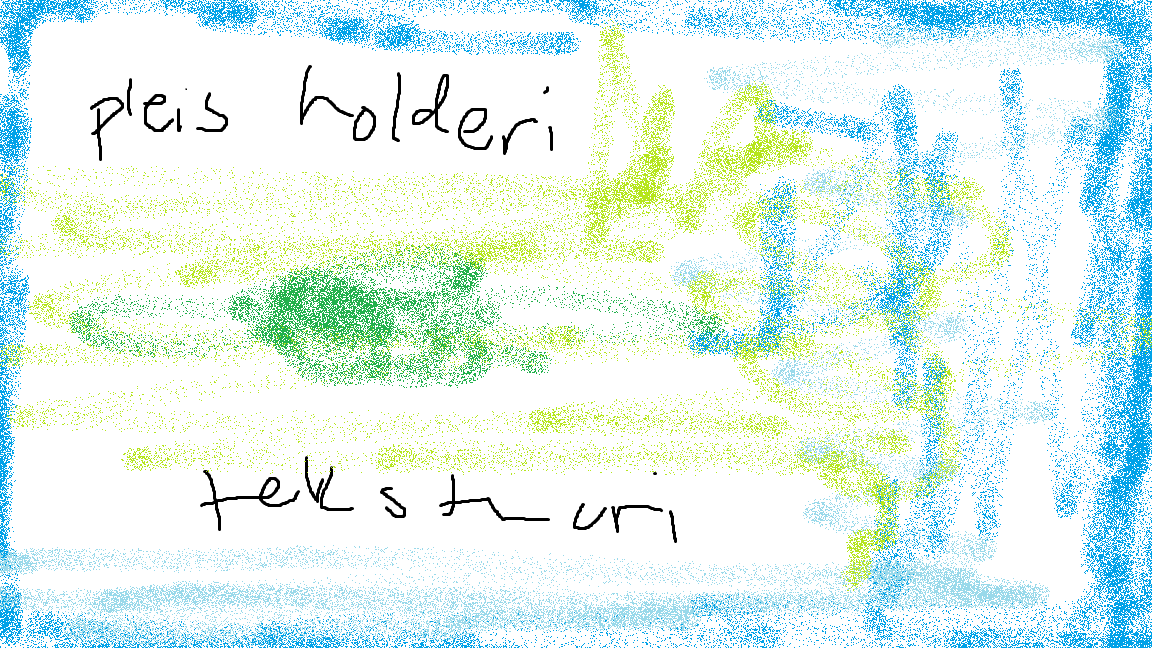 pleis holderi
teksturi